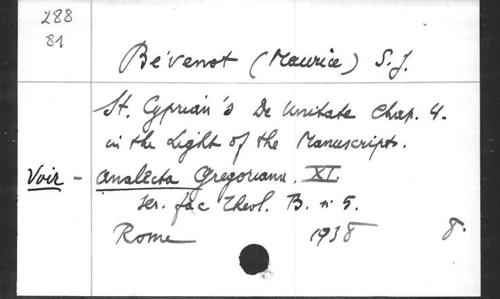 288
81
Bévenot (Maurice) S.J.
St. Cyprian's De Unitate Chap. 4.
in the Light of the Manuscripts.
Voir - Analecta Gregoriana. XI.
ser. fac Theol. B. n. 5.
Rome 1938 8.